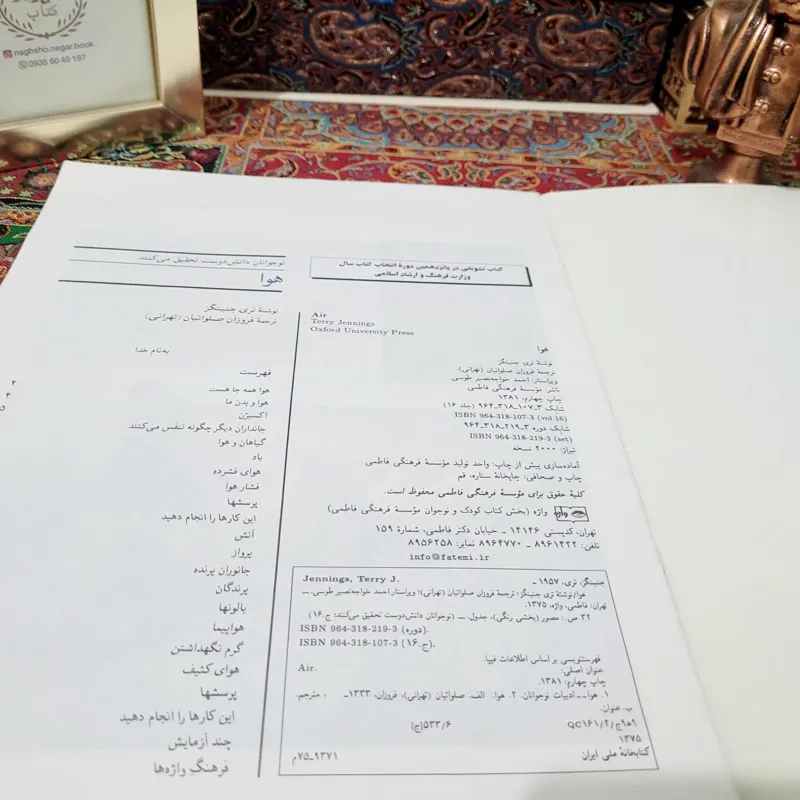 کتاب
naghsho.negar.book
0935 60 40 197
نوجوانان دانش‌دوست تحقیق می‌کنند
هوا
نوشتهٔ تری جنینگز
ترجمهٔ فروزان صلواتیان (تهرانی)
به‌نام خدا
فهرست
هوا همه جا هست
هوا و بدن ما
اکسیژن
جانداران دیگر چگونه تنفس می‌کنند
گیاهان و هوا
باد
هوای فشرده
فشار هوا
پرسشها
این کارها را انجام دهید
آتش
پرواز
جانوران پرنده
پرندگان
بالونها
هواپیما
گرم نگهداشتن
هوای کثیف
پرسشها
این کارها را انجام دهید
چند آزمایش
فرهنگ واژه‌ها
۳
۴
۵
کتاب تشویقی در پانزدهمین دورهٔ انتخاب کتاب سال
وزارت فرهنگ و ارشاد اسلامی
Air
Terry Jennings
Oxford University Press
هوا
نوشتهٔ تری جنینگز
ترجمهٔ فروزان صلواتیان (تهرانی)
ویراستار: احمد خواجه‌نصیر طوسی
ناشر: مؤسسهٔ فرهنگی فاطمی
چاپ چهارم: ۱۳۸۱
شابک ۳_۱۰۷_۳۱۸_۹۶۴ (جلد ۱۶)
ISBN 964-318-107-3 (vol.16)
شابک دوره ۳_۲۱۹_۳۱۸_۹۶۴
ISBN 964-318-219-3 (set)
تیراژ: ۲۰۰۰ نسخه
آماده‌سازی پیش از چاپ: واحد تولید مؤسسهٔ فرهنگی فاطمی
چاپ و صحافی: چاپخانهٔ ستاره، قم
کلیهٔ حقوق برای مؤسسهٔ فرهنگی فاطمی محفوظ است.
واژه واژه (بخش کتاب کودک و نوجوان مؤسسهٔ فرهنگی فاطمی)
تهران، کدپستی ۱۴۱۴۶ ـ خیابان دکتر فاطمی، شمارهٔ ۱۵۹
تلفن: ۸۹۶۱۴۲۲ ـ ۸۹۶۴۷۷۰ نمابر: ۸۹۵۶۲۵۸
info@fatemi.ir
جنینگز، تری، ۱۹۵۷ ـ Jennings, Terry J.
هوا/نوشتهٔ تری جنینگز؛ ترجمهٔ فروزان صلواتیان (تهرانی)؛ ویراستار احمد خواجه‌نصیر طوسی. ـ
تهران: فاطمی، واژه، ۱۳۷۵.
۳۲ ص.: مصور (بخشی رنگی)، جدول. ـ (نوجوانان دانش‌دوست تحقیق می‌کنند؛ ج.۱۶)
ISBN 964-318-219-3 (دوره).
ISBN 964-318-107-3 (ج.۱۶).
فهرستنویسی بر اساس اطلاعات فیپا.
عنوان اصلی: Air.
چاپ چهارم: ۱۳۸۱.
۱. هوا ـ ـ ادبیات نوجوانان. ۲. هوا. الف. صلواتیان (تهرانی)، فروزان، ۱۳۳۳ـ ، مترجم.
ب. عنوان.
۹ج۹/۲/QC۱۶۱ [ج]۵۳۳/۶
۱۳۷۵
کتابخانهٔ ملی ایران ۹۳۷۱_۷۵م